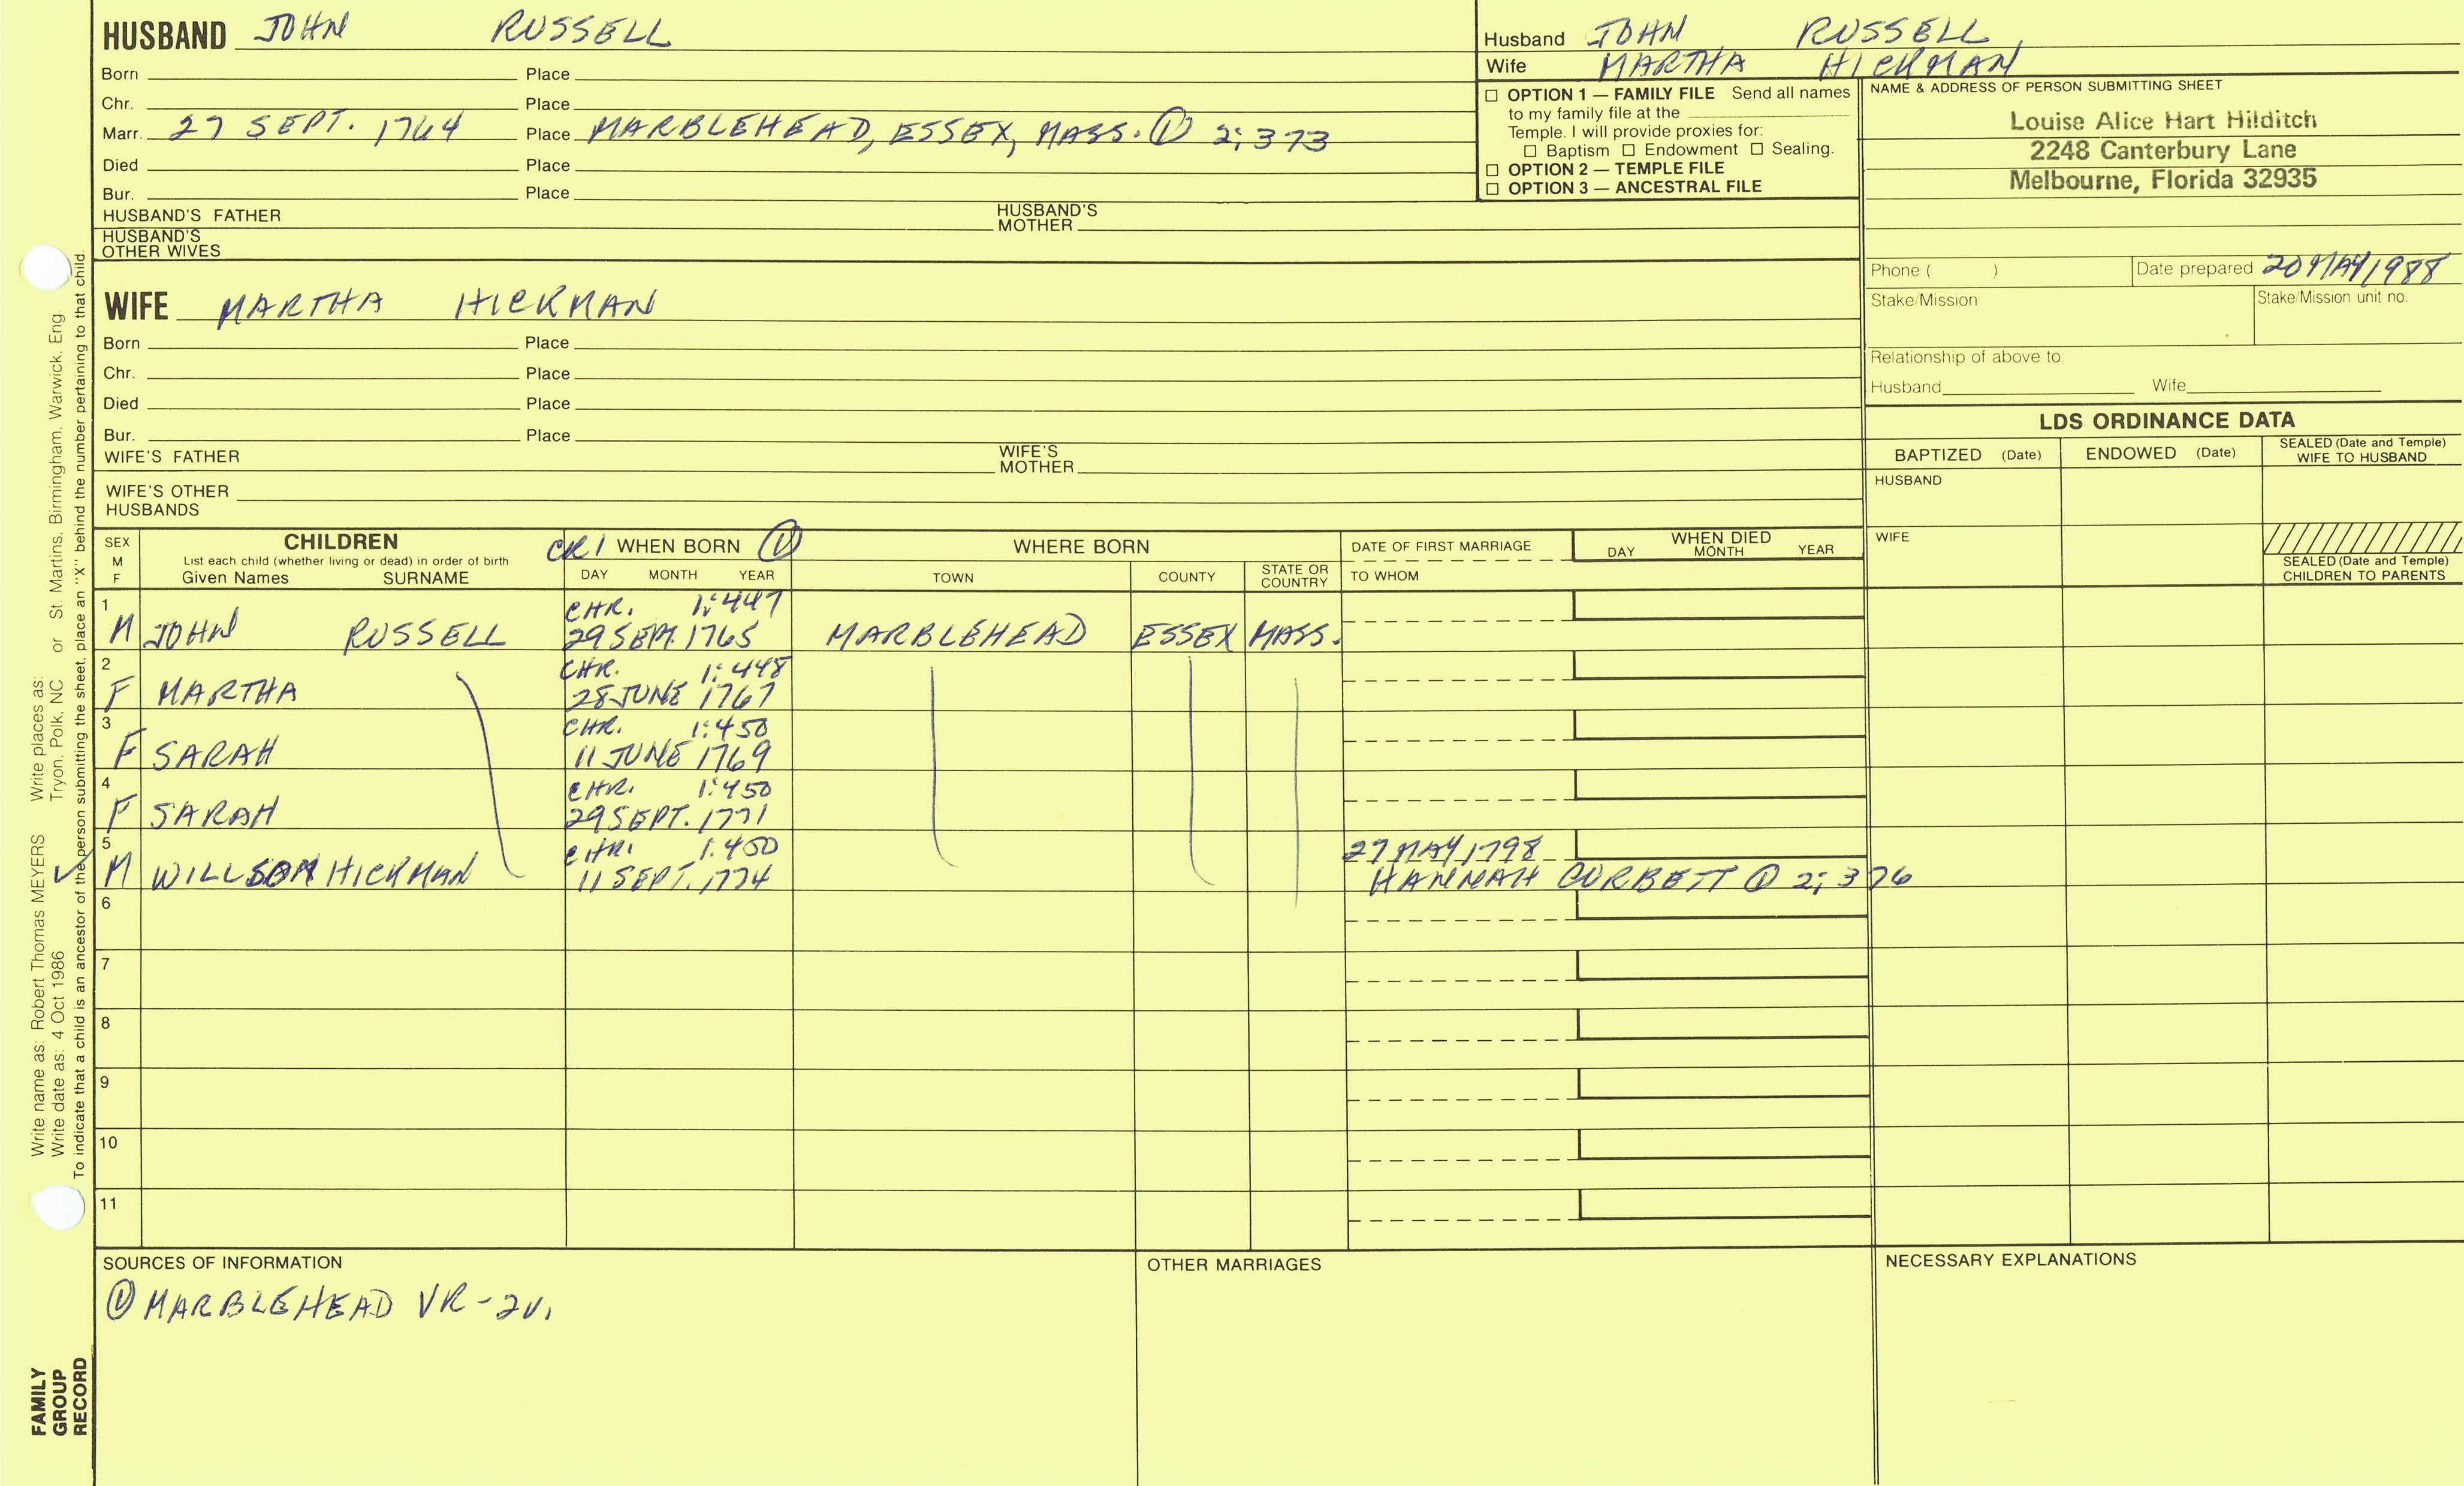 HUSBAND JOHN RUSSELL
Born Place
Chr. Place
Marr. 27 SEPT. 1764 Place MARBLEHEAD, ESSEX, MASS. ① 2:373
Died Place
Bur. Place
HUSBAND'S FATHER HUSBAND'S MOTHER
HUSBAND'S OTHER WIVES
Husband JOHN RUSSELL
Wife MARTHA HICKMAN
☐ OPTION 1 — FAMILY FILE Send all names
to my family file at the
Temple. I will provide proxies for:
☐ Baptism ☐ Endowment ☐ Sealing.
☐ OPTION 2 — TEMPLE FILE
☐ OPTION 3 — ANCESTRAL FILE
NAME & ADDRESS OF PERSON SUBMITTING SHEET
Louise Alice Hart Hilditch
2248 Canterbury Lane
Melbourne, Florida 32935
Phone ( ) Date prepared 20 MAY 1988
Stake/Mission Stake/Mission unit no.
Relationship of above to
Husband Wife
WIFE MARTHA HICKMAN
Born Place
Chr. Place
Died Place
Bur. Place
WIFE'S FATHER WIFE'S MOTHER
WIFE'S OTHER
HUSBANDS
LDS ORDINANCE DATA
BAPTIZED (Date) ENDOWED (Date) SEALED (Date and Temple) WIFE TO HUSBAND
HUSBAND
WIFE
SEALED (Date and Temple)
CHILDREN TO PARENTS
SEX
M
F
CHILDREN
List each child (whether living or dead) in order of birth
Given Names SURNAME
CR1 WHEN BORN ①
DAY MONTH YEAR
WHERE BORN
TOWN COUNTY STATE OR COUNTRY
DATE OF FIRST MARRIAGE
TO WHOM
WHEN DIED
DAY MONTH YEAR
1 CHR. 1:447
M JOHN RUSSELL 29 SEPT. 1765 MARBLEHEAD ESSEX MASS.
2 CHR. 1:448
F MARTHA 28 JUNE 1767
3 CHR. 1:450
F SARAH 11 JUNE 1769
4 CHR. 1:450
F SARAH 29 SEPT. 1771
5 CHR. 1:450 27 MAY 1798
M WILLSON HICKMAN 11 SEPT. 1774 HANNAH CORBETT ① 2:376
6
7
8
9
10
11
SOURCES OF INFORMATION
① MARBLEHEAD VR-2V.
OTHER MARRIAGES
NECESSARY EXPLANATIONS
Write name as: Robert Thomas MEYERS Write places as:
Write date as: 4 Oct 1986 Tryon, Polk, NC or St. Martins, Birmingham, Warwick, Eng
To indicate that a child is an ancestor of the person submitting the sheet, place an "X" behind the number pertaining to that child.
FAMILY
GROUP
RECORD